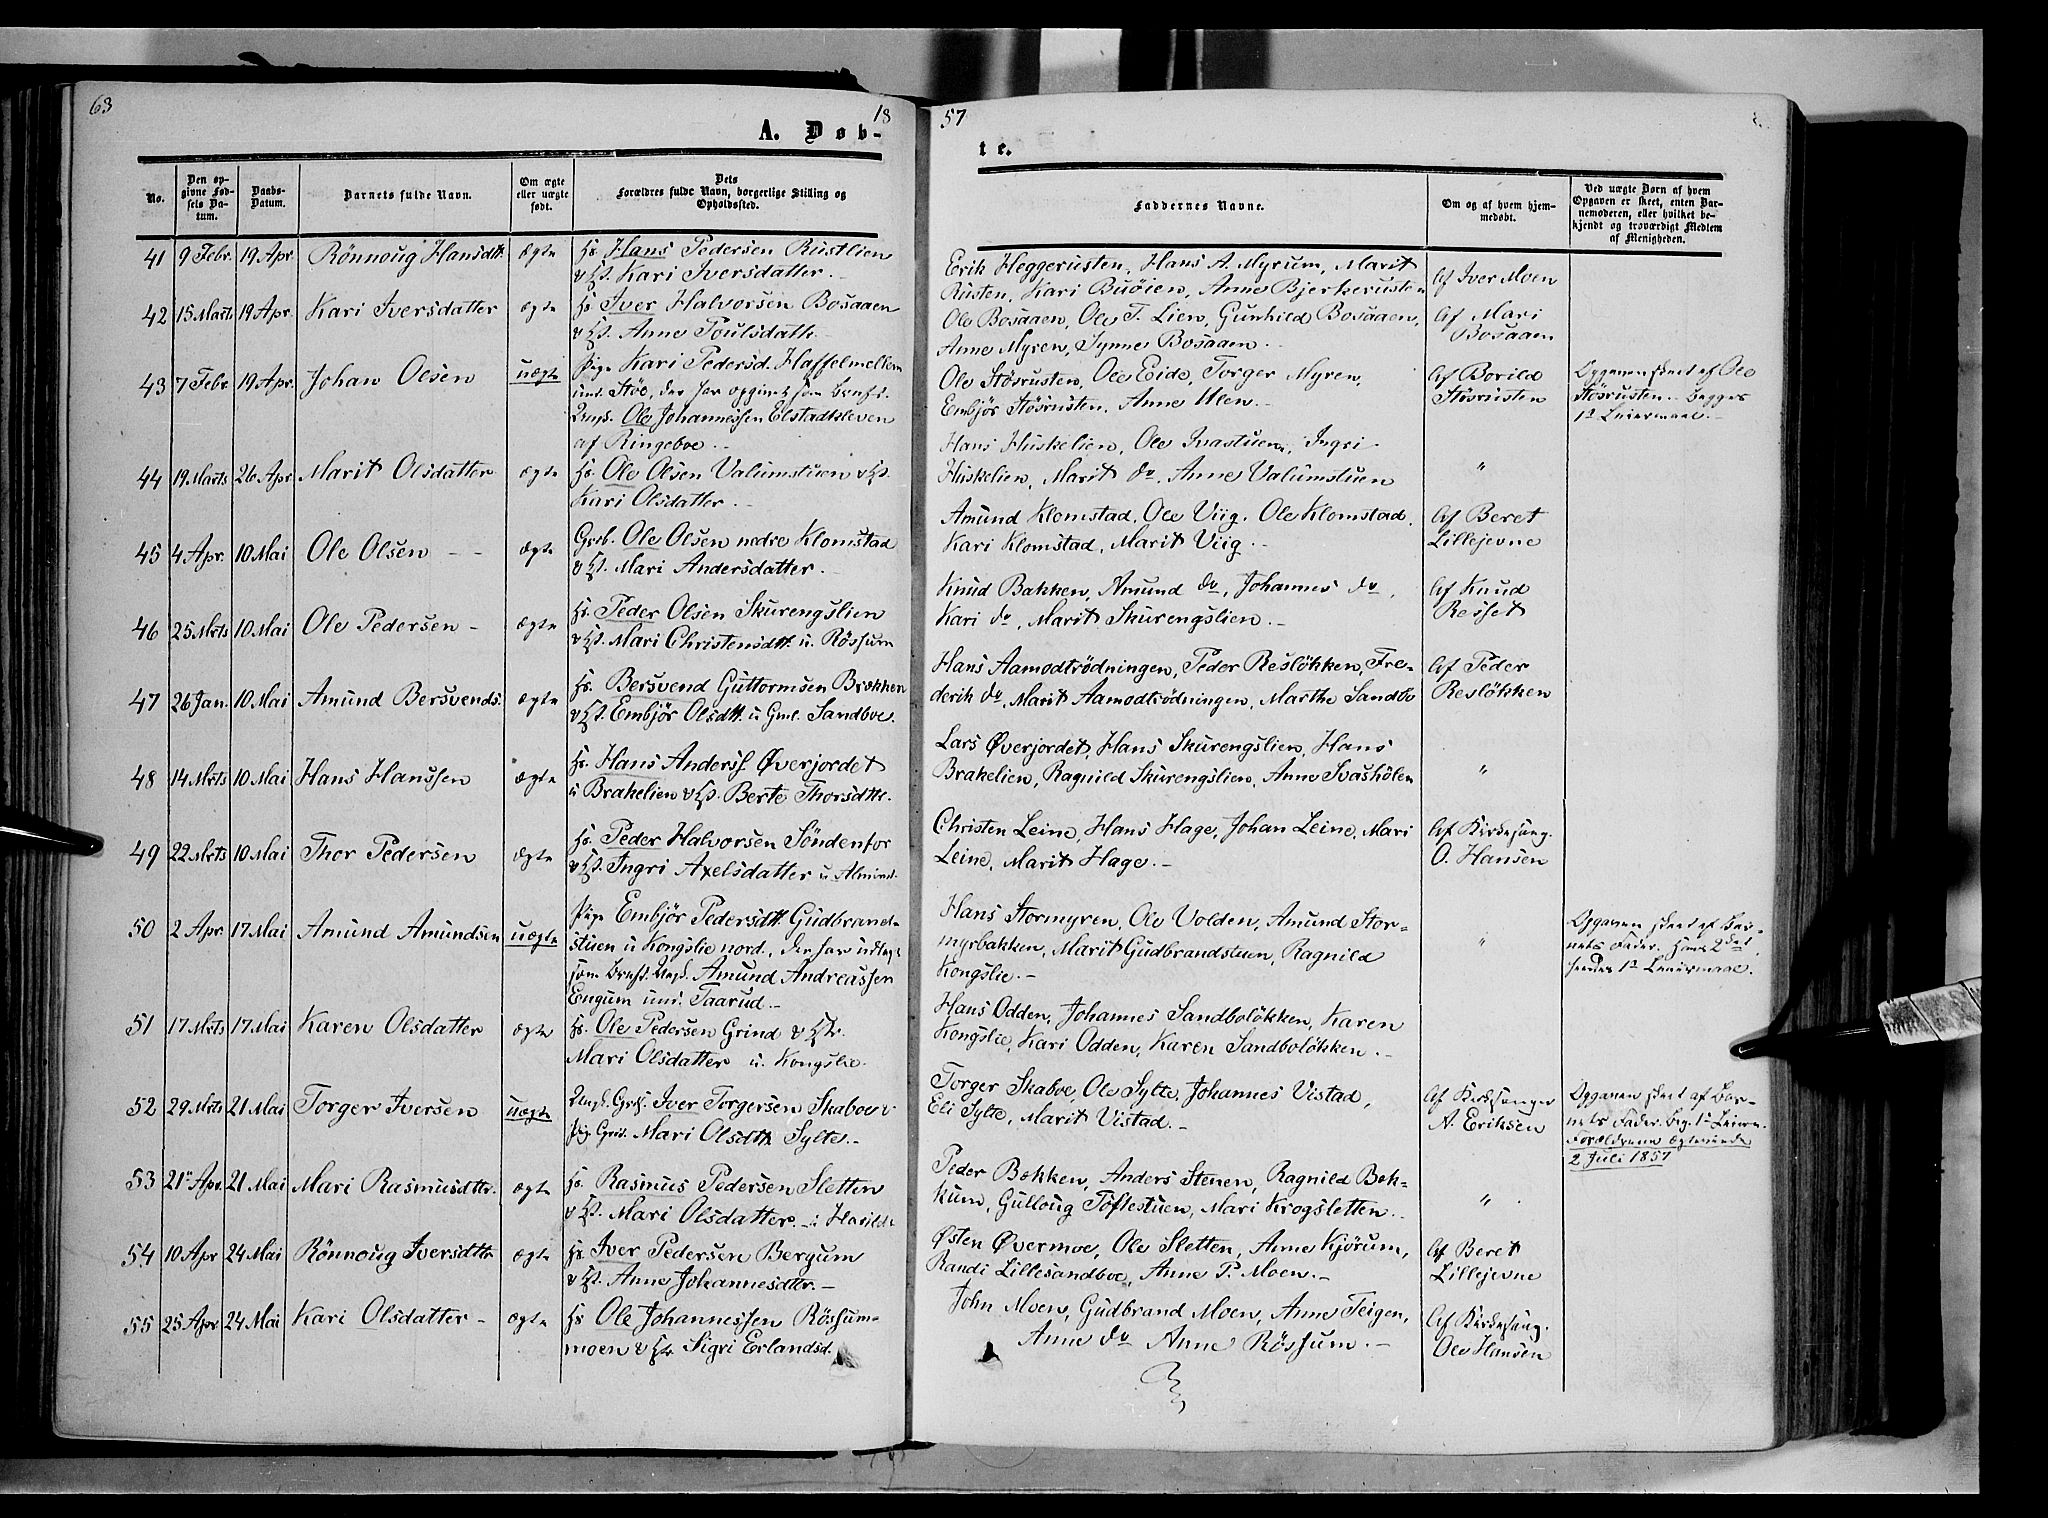 63
18
57
A. Døb-
te.
No.
Den op-
givne Fød-
sels Da-
tum.
Daabs-
Datum.
Barnets fulde Navn.
Om ægte
eller uægte
født.
Dets
Forældres fulde Navn, borgerlige Stilling og
Opholdssted.
Faddernes Navne.
Om og af hvem hjem-
medøbt.
Ved uægte Børn af hvem
Opgaven er skeet, enten Bar-
nemoderen, eller hvilket be-
kjendt og troværdigt Medlem
af Menigheden.
41 9 Febr. 19 Apr. Rönnoug Hansdtt. ægte
Hans Pedersen Rustlien
Kari Iversdatter. -
Erik Heggerusten, Hans A. Myrum, Marit
Rusten, Kari Buöien, Anne Bjerkerusten
Af Iver Moen
42 15 Marts 19 Apr. Kari Iversdatter ægte
Iver Halvorsen Bosaaen
Anne Poulsdatt. -
Ole Bosaaen, Ole T. Lien, Gunhild Bosaaen,
Anne Myren, Synne Bosaaen. -
Af Mari
Bosaaen
43 7 Febr. 19 Apr. Johan Olsen uægte
Pige Kari Pedersd. Haffelmellem
und. Stöe, der har opgivet som Barnef.
Ungk. Ole Johannessen Elstadkleven
af Ringeboe. -
Ole Stösrusten, Ole Eide, Torger Myren,
Embjör Stösrusten, Anne Ulen. -
Af Borild
Stösrusten
Opgaven skeet af Ole
Stösrusten. Begges
1st Leiermaal. -
44 19 Marts 26 Apr. Marit Olsdatter ægte
Ole Olsen Valumstuen
Kari Olsdatter. -
Hans Huskelien, Ole Ivastuen, Ingri
Huskelien, Marit do, Anne Valumstuen
"
45 4 Apr. 10 Mai Ole Olsen - - ægte
Grb. Ole Olsen nedre Klomstad
Mari Andersdatter. -
Amund Klomstad, Ole Viig, Ole Klomstad,
Kari Klomstad, Marit Viig. -
Af Beret
Lillejevne
46 25 Mrts 10 Mai Ole Pedersen - ægte
Peder Olsen Skurengslien
Mari Christensdtt. u. Rössum
Knud Bakken, Amund do, Johannes do,
Kari do, Marit Skurengslien. -
Af Knud
Resset
47 26 Jan. 10 Mai Amund Bersvends. ægte
Bersvend Guttormsen Brækken
Embjör Olsdtt. u Gml. Sandboe.
Hans Aamodtrödningen, Peder Reslökken, Fre-
derik do, Marit Aamodtrödningen, Marthe Sandbo
Af Peder
Reslökken
48 14 Mrts 10 Mai Hans Hanssen ægte
Hans Anderss. Øverjordet
u Brakelien Berte Thorsdtt.
Lars Øverjordet, Hans Skurengslien, Hans
Brakelien, Ragnild Skurengslien, Anne Svashölen
"
49 22 Mrts 10 Mai Thor Pedersen ægte
Peder Halvorsen Söndenfor
Ingri Axelsdatter u. Almind.
Christen Leine, Hans Hage, Johan Leine, Mari
Leine, Marit Hage. -
Af Kirkesang.
O. Hansen
50 2 Apr. 17 Mai Amund Amundsen uægte
Pige Embjör Pedersdtt. Gudbrand-
stuen u Kongslie nord., der har udlagt
som Barnef. Ungk. Amund Andreassen
Engum und. Taarud. -
Hans Stormyren, Ole Volden, Amund Stor-
myrbakken, Marit Gudbrandstuen, Ragnild
Kongslie. -
"
Opgaven skeet af Bar-
nets Fader. Hans 2det,
hendes 1st Leiermaal.
51 17 Mrts 17 Mai Karen Olsdatter ægte
Ole Pedersen Grind
Mari Olsdatter u. Kongslie.
Hans Odden, Johannes Sandbolökken, Karen
Kongslie, Kari Odden, Karen Sandbolökken. -
52 29 Mrts 21 Mai Torger Iversen uægte
Ungk. Grds. Iver Torgersen Skaboe
Pig. Grds. Mari Olsdtt. Sylte. -
Torger Skaboe, Ole Sylte, Johannes Vistad,
Eli Sylte, Marit Vistad. -
Af Kirkesanger
A. Eriksen
Opgaven skeet af Bar-
nets Fader. Beg. 1st Leierm.
Forældrene ægteviede
2 Juli 1857
53 21 Apr. 21 Mai Mari Rasmusdttr. ægte
Rasmus Pedersen Sletten
Mari Olsdatter. -
Peder Bækken, Anders Stenen, Ragnild Bæk-
kum, Gulloug Toftestuen, Mari Krogsletten. -
"
54 10 Apr 24 Mai Rönnoug Iversdttr ægte
Iver Pedersen Bergum
Anne Johannesdtter. -
Østen Øvermoe, Ole Sletten, Anne Kjörum,
Randi Lillesandboe, Anne P. Moen. -
Af Beret
Lillejevne
55 25 Apr. 24 Mai Kari Olsdatter - ægte
Ole Johannessen Rössum-
moen Sigri Erlandsd.
John Moen, Gudbrand Moen, Anne Teigen,
Anne do Anne Rössum. -
Af Kirkesang.
Ole Hansen